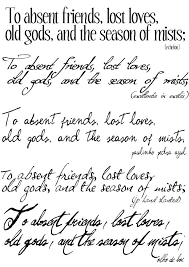 To absent friends, lost loves,
old gods, and the season of mists;
To absent friends, lost loves,
old gods, and the season of mists;
To absent friends, lost loves,
old gods, and the season of mists,
To absent friends, lost loves,
old gods, and the season of mists;
To absent friends, lost loves,
old gods, and the season of mists;